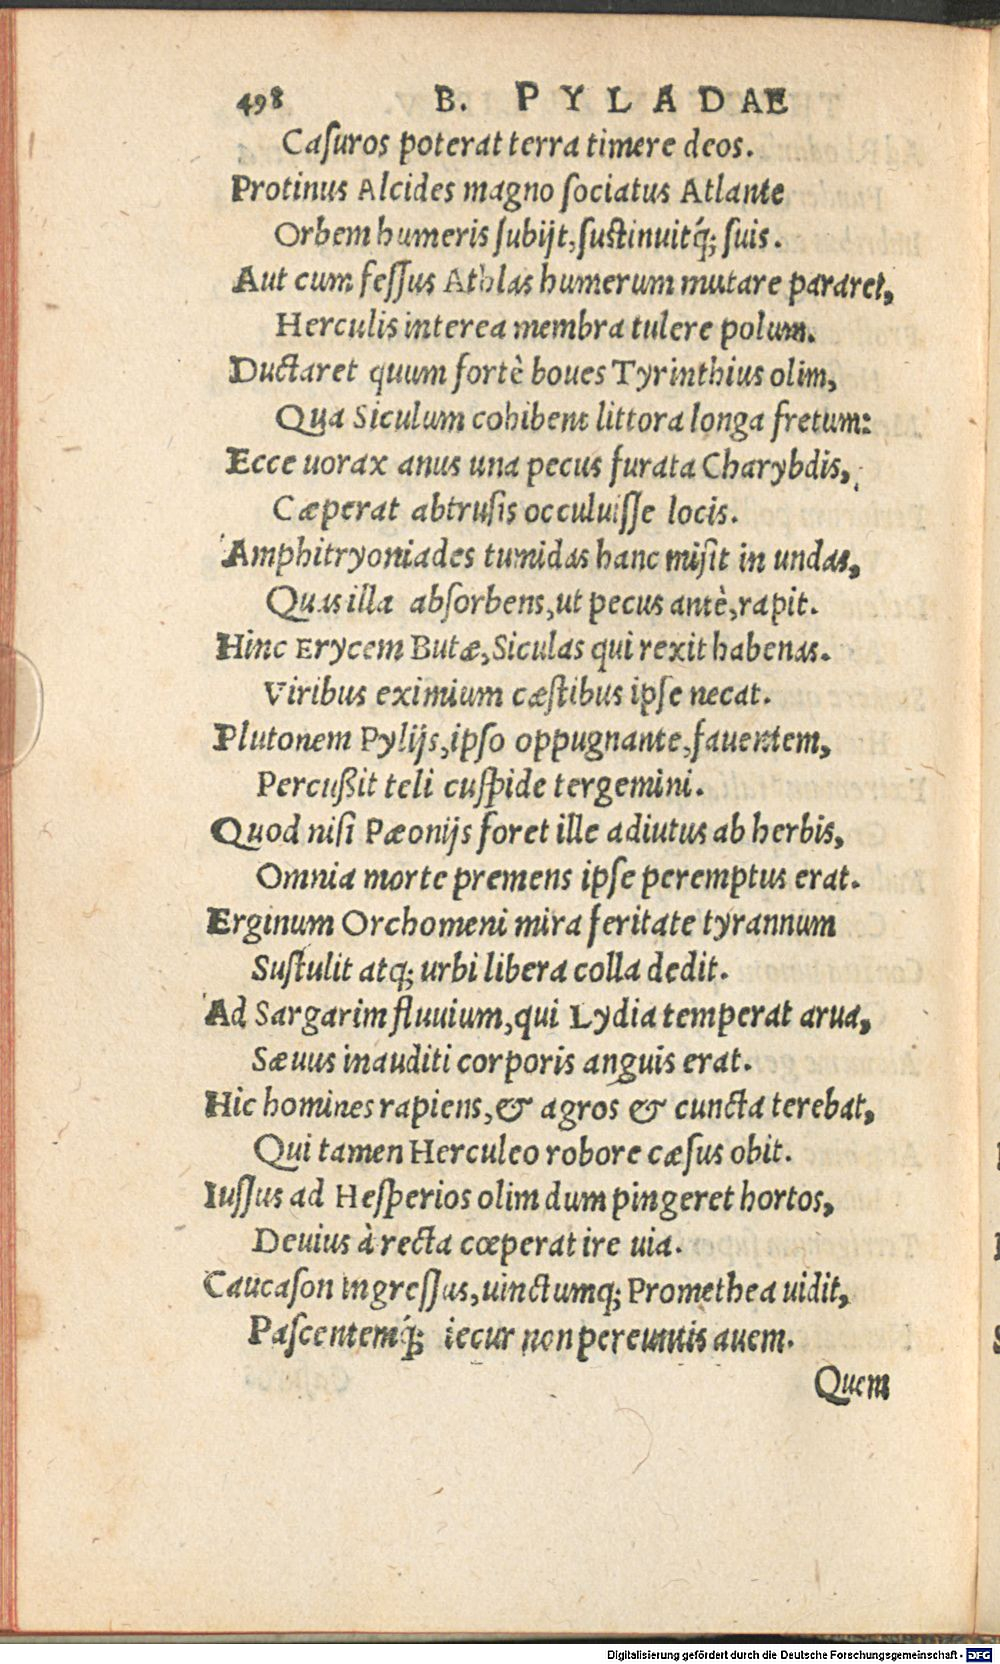 498 B. PYLADAE
Casuros poterat terra timere deos.
Protinus Alcides magno sociatus Atlante
Orbem humeris subijt, sustinuitq́; suis.
Aut cum fessus Athlas humerum mutare pararet,
Herculis interea membra tulere polum.
Ductaret quum fortè boues Tyrinthius olim,
Qua Siculum cohibent littora longa fretum:
Ecce uorax anus una pecus furata Charybdis,
Cæperat abtrusis occuluisse locis.
Amphitryoniades tumidas hanc misit in undas,
Quas illa absorbens, ut pecus antè, rapit.
Hinc Erycem Butæ, Siculas qui rexit habenas.
Viribus eximium cæstibus ipse necat.
Plutonem Pylijs, ipso oppugnante, fauentem,
Percußit teli cuspide tergemini.
Quod nisi Pæonijs foret ille adiutus ab herbis,
Omnia morte premens ipse peremptus erat.
Erginum Orchomeni mira feritate tyrannum
Sustulit atq; urbi libera colla dedit.
Ad Sargarim fluuium, qui Lydia temperat arua,
Sæuus inauditi corporis anguis erat.
Hic homines rapiens, & agros & cuncta terebat,
Qui tamen Herculeo robore cæsus obit.
Iussus ad Hesperios olim dum pingeret hortos,
Deuius à recta cœperat ire uia.
Caucason ingressus, uinctumq; Promethea uidit,
Pascentemq́; iecur non pereuntis auem.
Quem
Digitalisierung gefördert durch die Deutsche Forschungsgemeinschaft - DFG